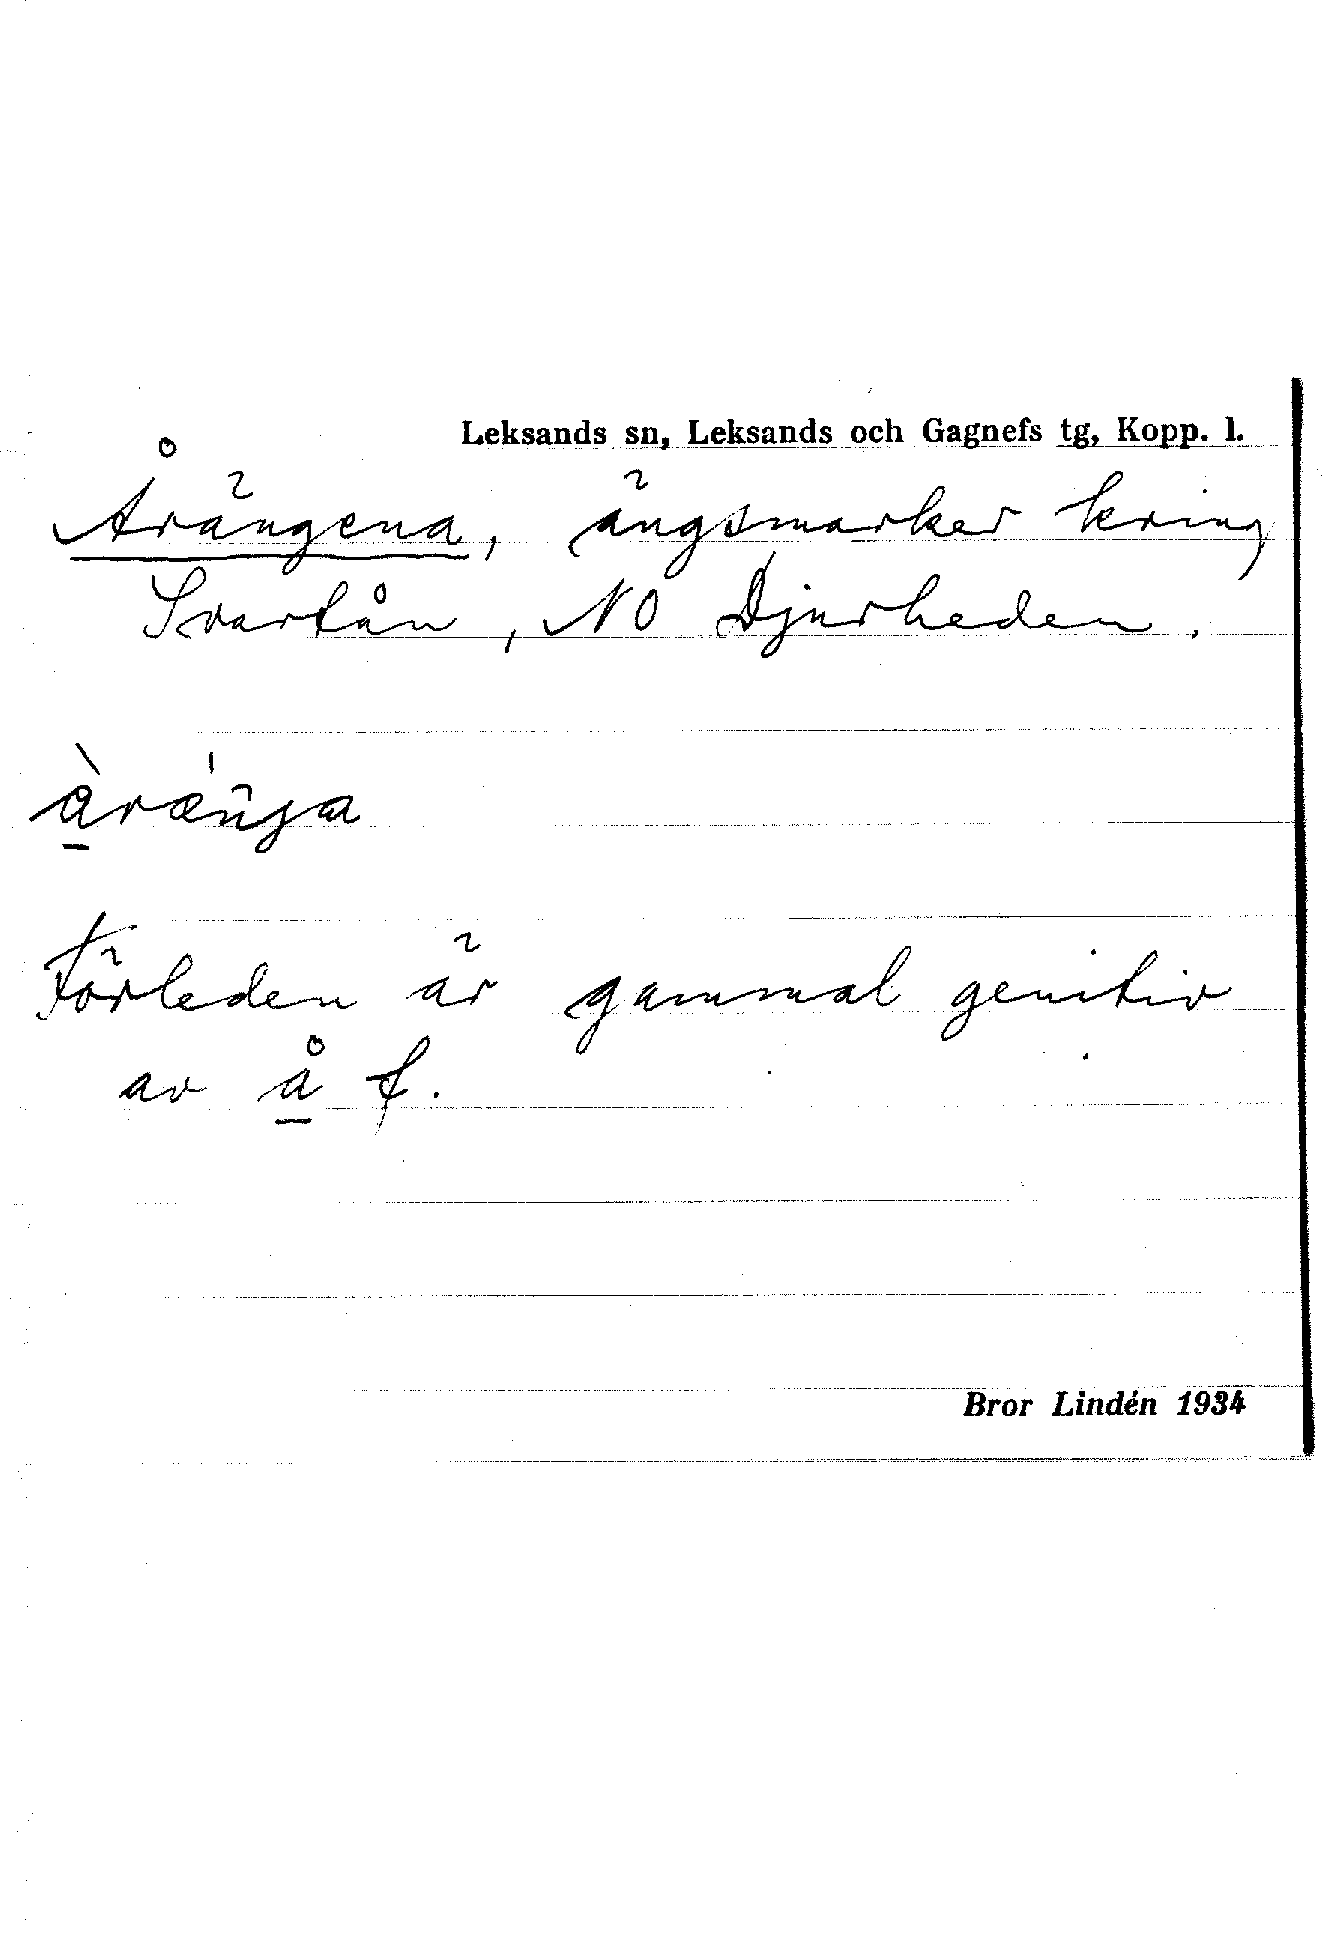 Leksands sn, Leksands och Gagnefs tg, Kopp. l.
Årängena, ängsmarker kring
Svartån, NO Djurheden.
àræ̀ŋja
Förleden är gammal genitiv
av å f.
Bror Lindén 1934